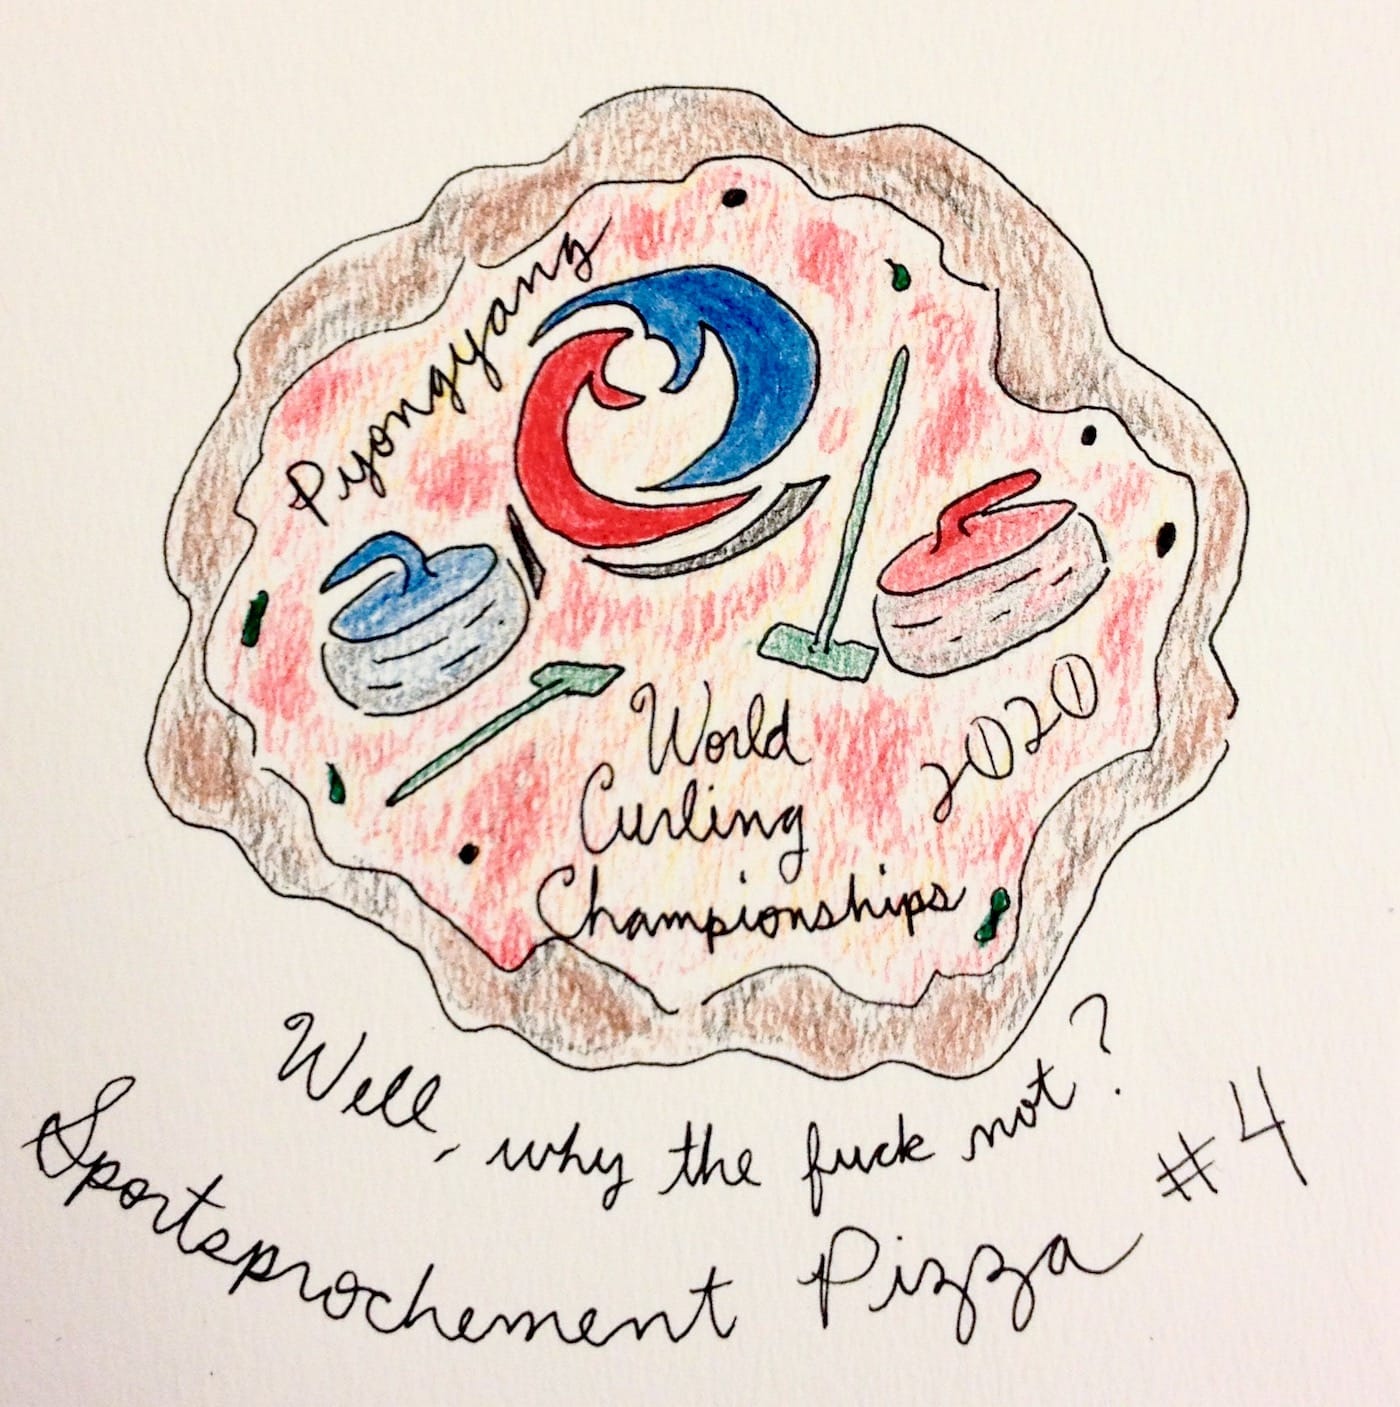 Pyongyang
World
Curling
Championships
2020
Well, why the fuck not?
Sportsprochement Pizza #4